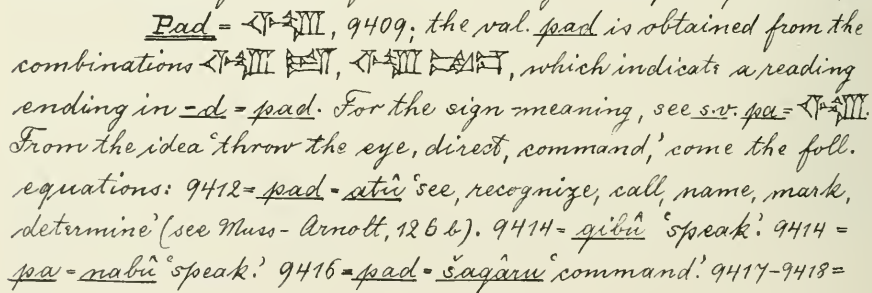 Pad = 𒅆𒊒, 9409; the val. pad is obtained from the
combinations 𒅆𒊒, 𒅆𒊒, which indicate a reading
ending in -d = pad. For the sign-meaning, see s.v. pa = 𒅆𒊒.
From the idea 'throw the eye, direct, command,' come the foll.
equations: 9412 = pad = atû 'see, recognize, call, name, mark,
determine' (see Muss-Arnolt, 126 b). 9414 = qibû 'speak.' 9414 =
pa = nabû 'speak.' 9416 = pad = šaqâru 'command.' 9417-9418 =